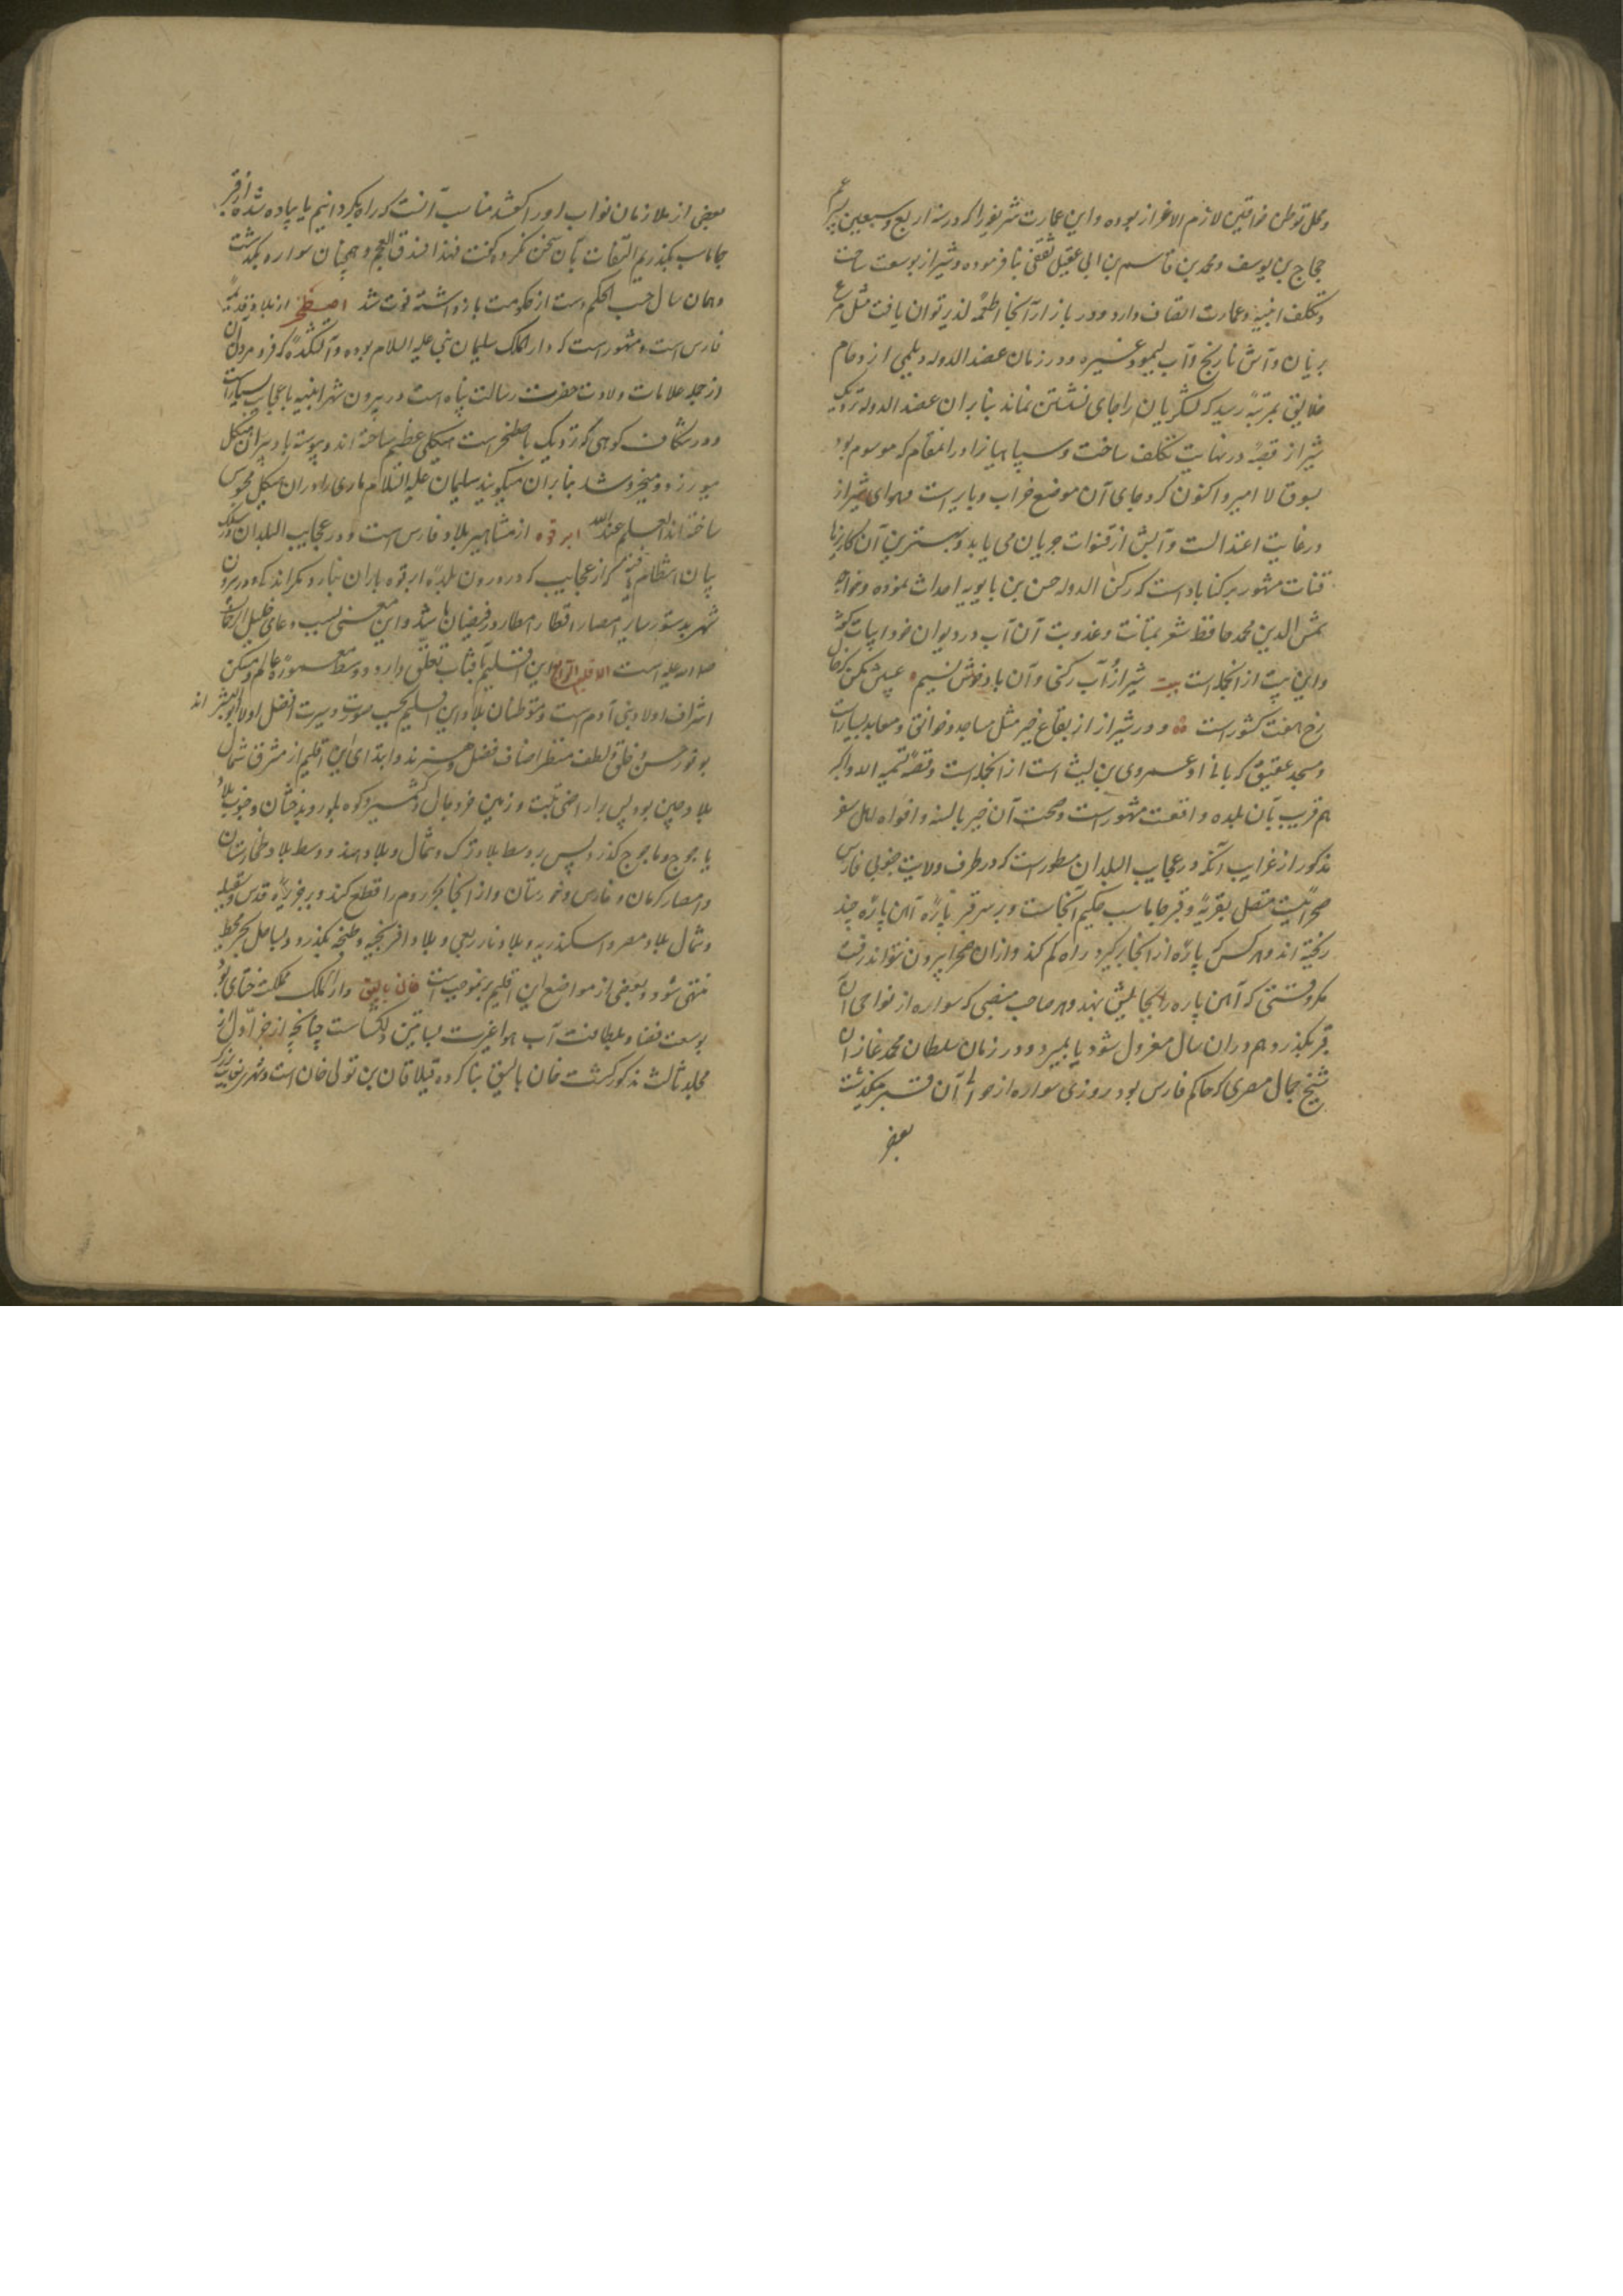 ومحل توطن خواقین لازم الاعزاز بوده و این عمارت شریفه را که در سنه اربع و سبعین پسر عم
حجاج بن یوسف ومحمد بن قاسم بن ابی عقیل ثقفی بنا فرموده و شیراز بوسعت ساحت
وتکلف ابنیه وعمارت اتصاف دارد ودر بازار آنجا اطعمهٔ لذیذ توان یافت مثل مرغ
بریان وآش نارنج وآب لیمو وغیره ودر زمان عضد الدوله دیلمی ازدحام
خلایق بمرتبهٔ رسید که لشکریان را جای نشستن نماند بنابران عضد الدوله نزدیک
شیراز قصبهٔ در نهایت تکلف ساخت وسپاهیانرا در آنمقام که موسوم بود
بسوق الامیر واکنون کرد جای آن موضع خراب وبایر است وهوای شیراز
در غایت اعتدالست وآبش از قنوات جریان می یابد وبهترین آن کاریزها
قنات مشهور برکناباد است که رکن الدوله حسن بن بابویه احداث نموده وخواجه
شمس الدین محمد حافظ شعر بمتانت وعذوبت آن آب در دیوان خود ابیات
واین بیت از انجمله است بیت شیراز وآب رکنی وآن باد خوش نسیم عیبش مکن که خال
رخ هفت کشور است ودر شیراز از بقاع خیر مثل مساجد وخوانق ومعابد بسیار است
ومسجد عتیق که بانی او عمروی بن لیث است از انجمله است
هم قریب بآن بلده واقعست مشهور است وصحت آن خبر بالسنه وافواه اهل سفر
مذکور از غرایب آنکه در عجایب البلدان مسطور است که در طرف ولایت جنوبی فارس
صحرائیست متصل بقریهٔ وقبر جاماسب حکیم آنجاست وبر سر قبر پارهٔ آهن پارهٔ چند
ریخته اند وهر کس که پارهٔ از انجا برگیرد راه گم کند وازان صحرا بیرون نتواند رفت
مکر وقتی که آهن پاره را بجایش نهد وهر صاحب منصبی که سواره از نواحی آن
قبر بگذرد هم دران سال معزول شود یا بمیرد ودر زمان سلطان محمد غازان
شیخ جمال مصری که حاکم فارس بود روزی سواره از حوالی آن قبر میگذشت
بعض
بعضی از ملازمان نواب او را گفتند مناسب آنست که راه بگردانیم یا پیاده شده از قبر
جاماسب بگذریم التفات بآن سخن نکرد وگفت فهذا فندق العجم وهمچنان سواره بگذشت
وهمان سال حسب الحکم دست از حکومت بازداشته فوت شد اصطخر از بلاد قدیمهٔ
فارس است ومشهور است که دار الملک سلیمان نبی علیه السلام بوده وآتشکدهٔ که فرو مردن آن
از جمله علامات ولادت حضرت رسالت پناه است در بیرون شهر ابنیه با عجایب بسیار است
ودر شکاف کوهی که نزدیک باصطخر است هیکلی عظیم ساخته اند وپیوسته باد بیران هیکل
میوزد ومیخروشد بنابران میگویند سلیمان علیه السلام ماری را دران هیکل محبوس
ساخته اند العلم عند الله ابرقوه از مشاهیر بلاد فارس است ودر عجایب البلدان در سلک
بیان انتظام یافته که از عجایب که در درون بلدهٔ ابرقوه باران نبارد مکر اندکی ودر بیرون
شهر بدستور سایر امصار اقطار امطار در فیضان باشد واین معنی بسبب دعای خلیل الرحمن
صلوات علیه است الاقلیم الرابع این اقلیم بآفتاب تعلق دارد ووسط معمورهٔ عالم ومسکن
اشراف اولاد بنی آدم است ومتوطنان بلاد این اقلیم بحسب صورت وسیرت افضل اولاد ابو البشر اند
بوفور حسن خلق ولطف منظر اصناف فضل وهنرند وابتدای این اقلیم از مشرق شمال
بلاد چین بود پس بر اراضی تبت وزمین وجبال کشمیر وکوه بلور وبدخشان وجنوب بلاد
یاجوج وماجوج گذرد پس بوسط بلاد ترک وشمال وبلاد هند ووسط بلاد طخارستان
وامصار کرمان وفارس وخوزستان واز انجا بحر روم را قطع کند وبر جزیرهٔ قبرس وصقلیه
وشمال بلاد مصر واسکندریه وبلاد وبلاد افرنجه وطنجه بگذرد وبساحل بحر محیط
منتهی شود وبعضی از مواضع این اقلیم برینموجب است خان بالیق دار الملک مملکت ختای بود
بوسعت فضا ولطافت آب هوا غیرت بساتین دلکشاست چنانچه از جزء اول از
مجلد ثالث مذکور گشت خان بالیق بنا کرده قبلا قاآن بن تولی خان است